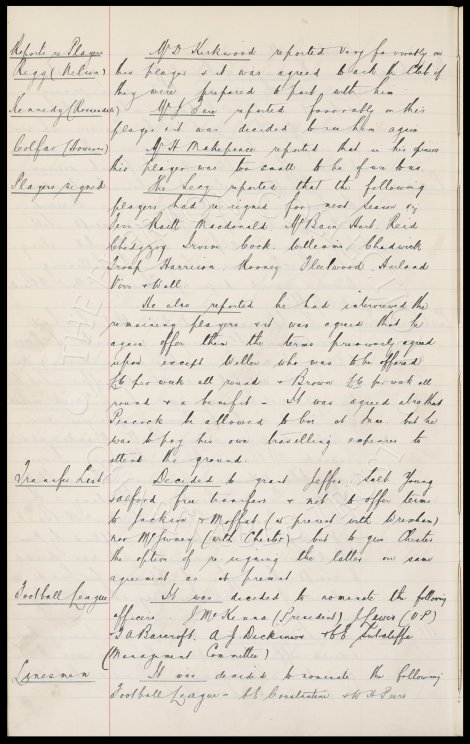 Reports re Players Mr D. Kirkwood reported very favorably on
Rigg (Nelson) his player & it was agreed to ask the Club if
they were prepared to part with him.
Kennedy Mr J. Fare reported favorably on this
player & it was decided to see him again
Mr H Makepeace reported that in his opinion
this player was too small to be of use to us.
Players signed The Secy reported that the following
players had re-signed for next season viz
Fern Raitt Macdonald McBain Hart Reid
Chedgzoy Irvine Cock Williams Chadwick
Troup Harrison Rooney Fleetwood Harland
Virr & Wall.
He also reported he had interviewed the
remaining players & it was agreed that he
again offer them the terms previously agreed
upon except Weller who was to be offered
£6 per week all round & Brown £6 per week all
round & a benefit - It was agreed also that
Peacock be allowed to live at but he
was to pay his own travelling expenses to
attend the ground.
Transfer List Decided to grant Jeffs Salt Young
& Salford free transfers & not to offer terms
to Jackson & Moffat (at present with Wrexham)
nor (with Chester) but to give Chester
the option of re-signing the latter on same
agreement as at present
Football League It was decided to nominate the following
officers. J McKenna (President) J Lewis (V.P)
T A Barcroft. A J Dickinson & C E Sutcliffe
(Management Committee)
Linesmen It was decided to nominate the following
Football League - Constantine & W H Peers